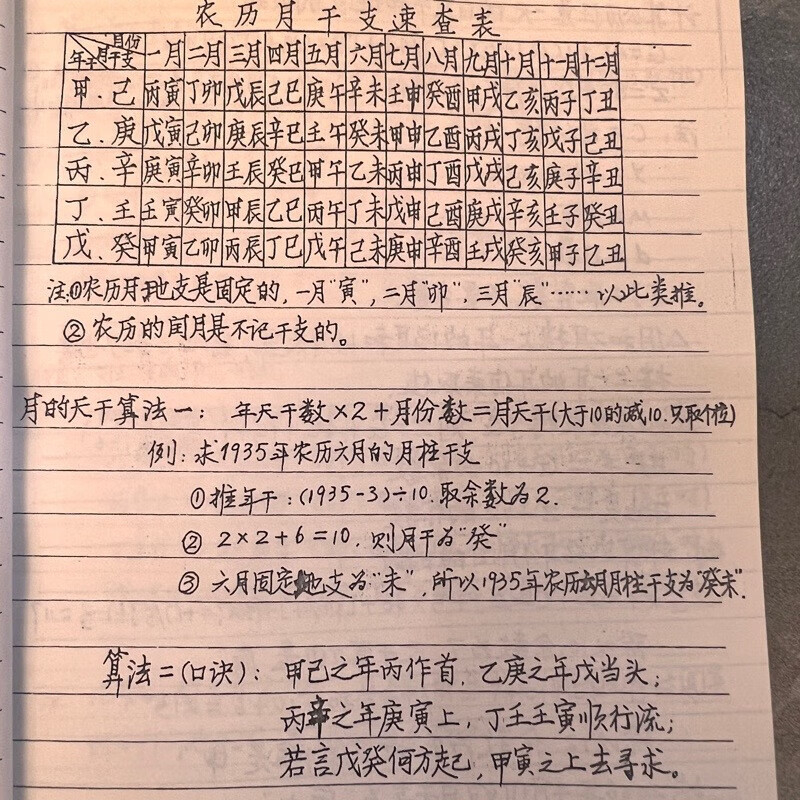 农历月干支速查表
月份 月干支 年干 一月 二月 三月 四月 五月 六月 七月 八月 九月 十月 十一月 十二月
甲.己 丙寅 丁卯 戊辰 己巳 庚午 辛未 壬申 癸酉 甲戌 乙亥 丙子 丁丑
乙.庚 戊寅 己卯 庚辰 辛巳 壬午 癸未 甲申 乙酉 丙戌 丁亥 戊子 己丑
丙.辛 庚寅 辛卯 壬辰 癸巳 甲午 乙未 丙申 丁酉 戊戌 己亥 庚子 辛丑
丁.壬 壬寅 癸卯 甲辰 乙巳 丙午 丁未 戊申 己酉 庚戌 辛亥 壬子 癸丑
戊.癸 甲寅 乙卯 丙辰 丁巳 戊午 己未 庚申 辛酉 壬戌 癸亥 甲子 乙丑
注:①农历月地支是固定的,一月"寅",二月"卯",三月"辰"……以此类推。
②农历的闰月是不记干支的。
月的天干算法一: 年天干数×2+月份数=月天干(大于10的减10.只取个位)
例:求1935年农历六月的月柱干支
①推年干:(1935-3)÷10.取余数为2.
②2×2+6=10.则月干为"癸"
③六月固定地支为"未",所以1935年农历六月月柱干支为"癸未".
算法二(口诀):甲己之年丙作首,乙庚之年戊当头;
丙辛之年庚寅上,丁壬壬寅顺行流;
若言戊癸何方起,甲寅之上去寻求。